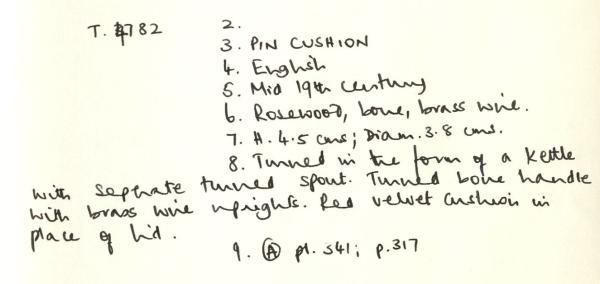 T. 4782
2.
3. PIN CUSHION
4. English
5. Mid 19th century
6. Rosewood, bone, brass wire.
7. H. 4.5 cms; Diam. 3.8 cms.
8. Turned in the form of a kettle
with seperate turned spout. Turned bone handle
with brass wire uprights. Red velvet cushion in
place of lid.
9. Ⓐ pl. 341; p. 317